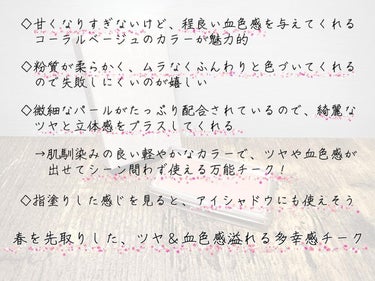 ◇甘くなりすぎないけど、程良い血色感を与えてくれる
コーラルベージュのカラーが魅力的
◇粉質が柔らかく、ムラなくふんわりと色づいてくれる
ので失敗しにくいのが嬉しい
◇微細なパールがたっぷり配合されているので、綺麗な
ツヤと立体感をプラスしてくれる
→肌馴染みの良い軽やかなカラーで、ツヤや血色感が
出せてシーン問わず使える万能チーク！
◇指塗りした感じを見ると、アイシャドウにも使えそう
春を先取りした、ツヤ＆血色感溢れる多幸感チーク